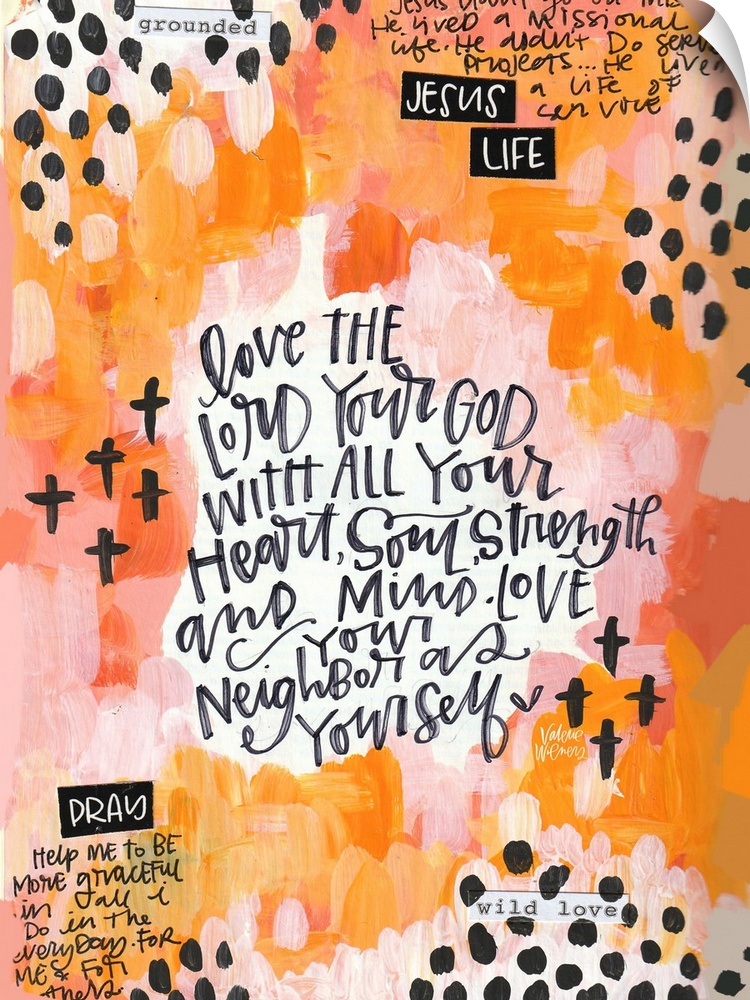 grounded
Jesus
He lived a missional
life. He didnt Do serv
Projects... He live
a life of
JESUS
LIFE
love THE
LORD Your GOD
WITH ALL Your
Heart, Soul, Strength
and Mind. LOVE
your
Neighbor as
yourself
Valerie
Wieners
PRAY
Help ME TO BE
More graceful
in all i
Do in the
everyday. For
ME & For
others.
wild love